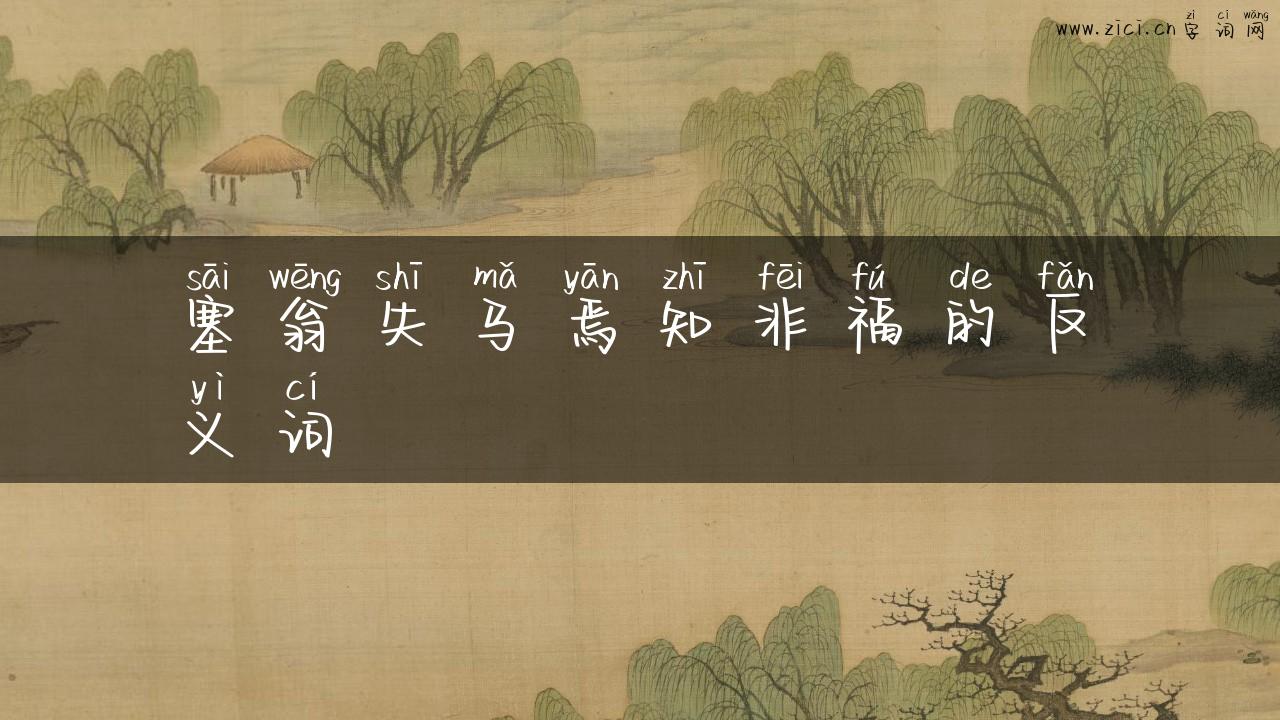 zì cí wǎng
www.zici.cn 字词网
sāi wēng shī mǎ yān zhī fēi fú de fǎn
塞翁失马焉知非福的反
yì cí
义词